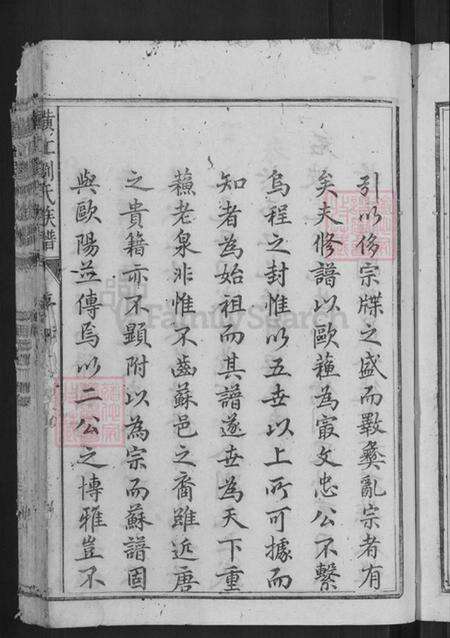 引以侈宗牒之盛而斁彝亂宗者有
矣夫修譜以歐蘓為最文忠公不繫
烏程之封惟以五世以上所可據而
知者為始祖而其譜遂世為天下重
蘓老泉非惟不齒蘇邑之裔雖近唐
之貴籍亦不顯附以為宗而蘇譜固
與歐陽並傳焉以二公之博雅豈不
劉氏族譜
FamilySearch